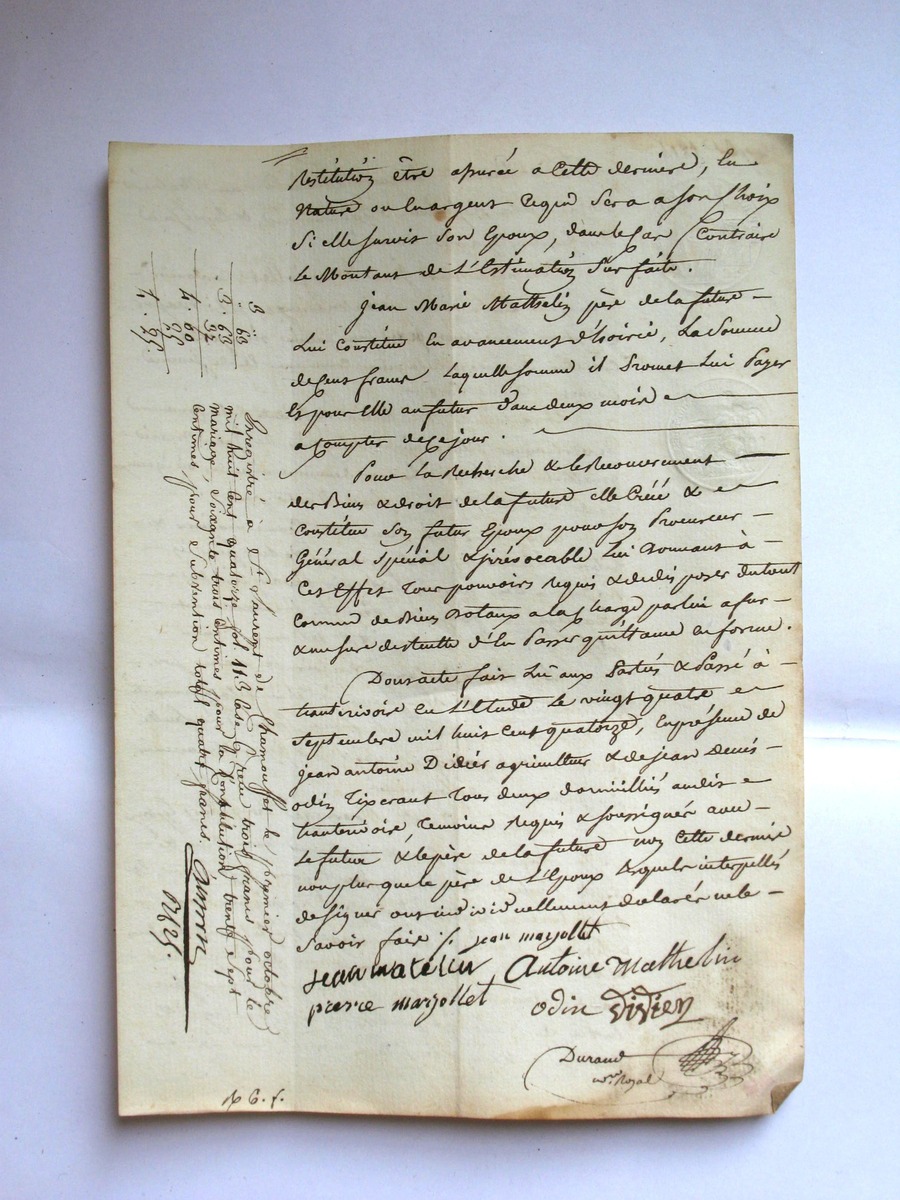 restitution être assurée a cette derniere, en
nature ou en argent ce qui sera a son Choix
Si elle survit son Epoux, dans le Cas Contraire
Le Montant de L'Estimation Sus faite.
Jean Marie Mathelin père de la future
Lui Constitue En avancement d'hoirie, La Somme
de Cent francs Laquelle somme il Promet Lui Payer
Et pour Elle au futur dans deux mois
a Compter de ce jour.
Pour La Recherche & le Recouvrement
des Biens & droit de la future elle Créé &
Constitue Son futur Epoux pour son Procureur
Général Spécial & irrévocable Lui Donnant à
Cet Effet Tous pouvoirs requis & de disposer du tout
Comme de Biens Dotaux a la Charge par lui a fur
& mesure de d'En Passer quittance en forme.
Dont acte fait Lu aux Parties & Passé à
hauterivoire En L'Etude Le vingt quatre
Septembre mil huit Cent quatorze, En présence de
jean antoine Didier agriculteur & de jean Denis
odin Tixerant Tous deux domiciliés audit
hauterivoire, Temoins Requis & soussignés avec
Le futur & le père de la future non Cette derniere
non plus que le père de L'Epoux Lesquels interpellés
de signer ont individuellement déclaré ne le
Savoir faire /. jean marjollet
jean matelin, Antoine Mathelin
pierre marjollet odin Didier
Durand
nore Royal
Enregistré à St Laurent de Chamousset le premier octobre
mil huit cent quatorze fol. 113 Case 4 reçu trois francs pour le
mariage, Soixante trois centimes pour la Constitution trente sept
centimes pour subvention total quatre francs.